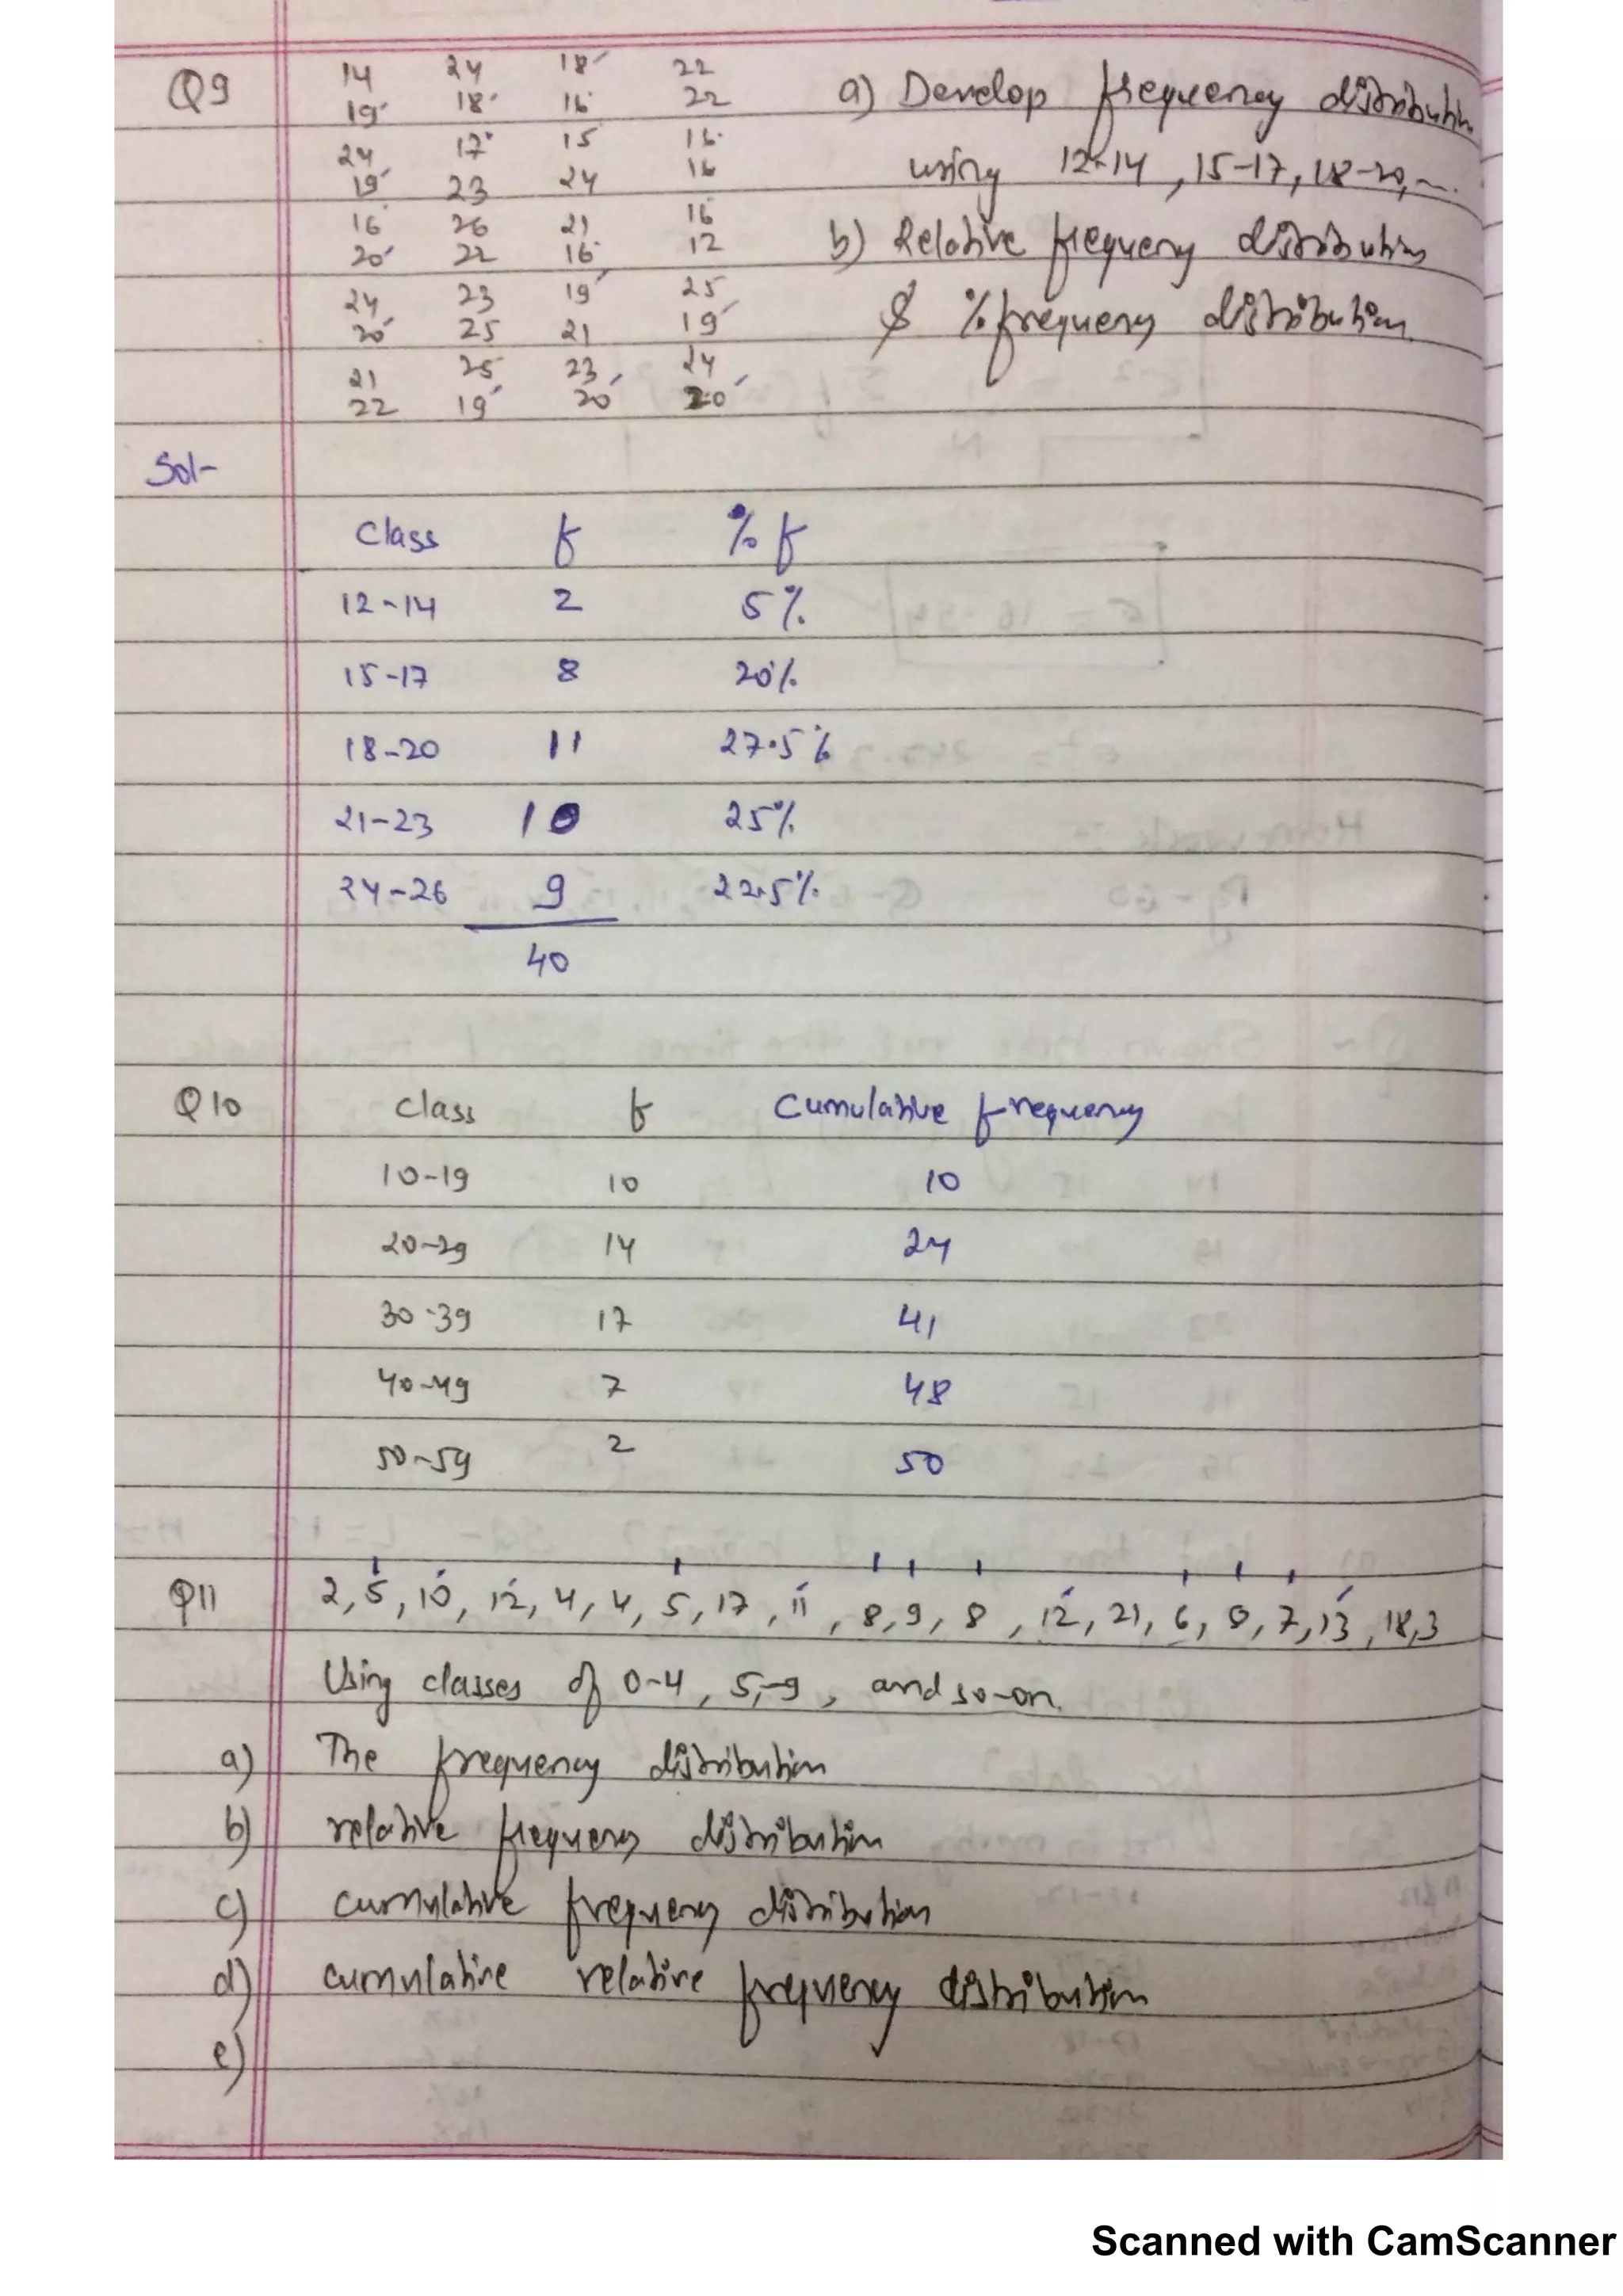 Q9 14 24 18 22
19 18 16 22 a) Develop frequency distribution
24 17 15 16
19 23 24 16 using 12-14, 15-17, 18-20, ~.
16 26 21 16
20 22 16 12 b) Relative frequency distribution
24 23 19 25
20 25 21 19 & % frequency distribution
21 25 23 24
22 19 20 20
Sol-
Class f % f
12-14 2 5%
15-17 8 20%
18-20 11 27.5%
21-23 10 25%
24-26 9 22.5%
40
Q10 class f Cumulative frequency
10-19 10 10
20-29 14 24
30-39 17 41
40-49 7 48
50-59 2 50
Q11 2, 5, 10, 12, 4, 4, 5, 17, 11, 8, 9, 8, 12, 21, 6, 8, 7, 13, 18, 3
Using classes of 0-4, 5-9, and so-on.
a) The frequency distribution
b) relative frequency distribution
c) cumulative frequency distribution
d) cumulative relative frequency distribution
e)
Scanned with CamScanner